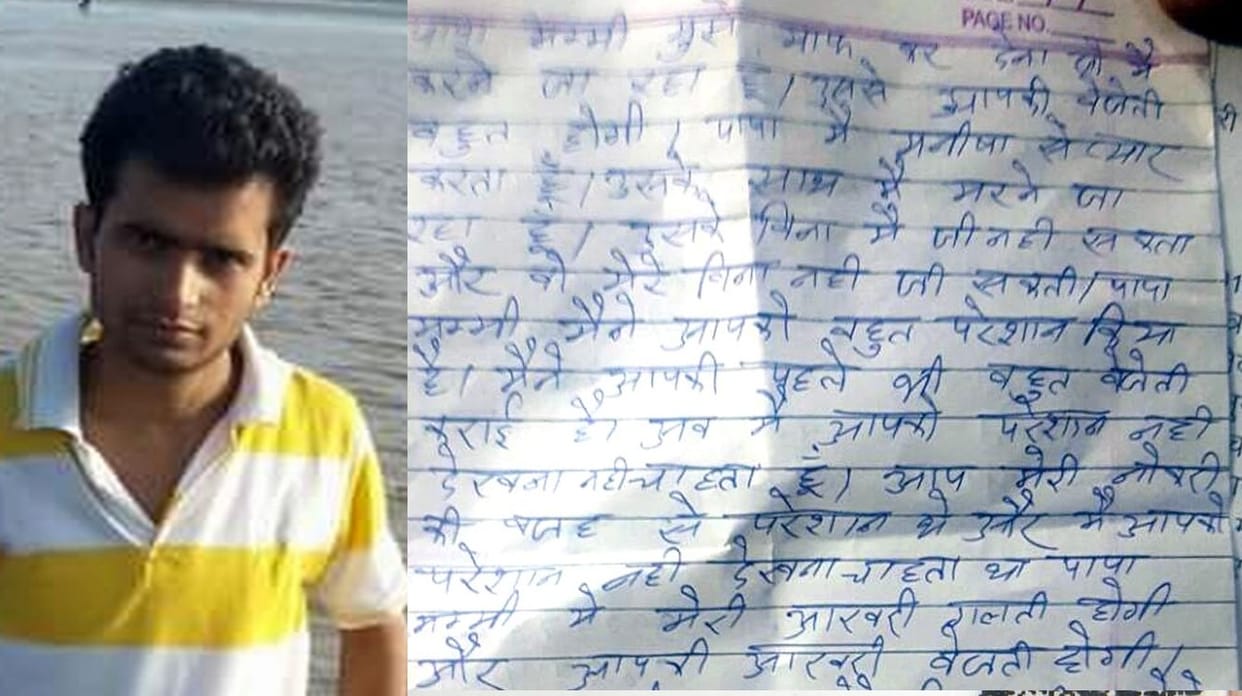 PAGE NO.
पापा मम्मी मुझे माफ कर देना जो मै
करने जा रहा हूं। उससे आपकी बेजेती
बहुत होगी। पापा मै मनीषा से प्यार
करता हूं। उसके साथ मै मरने जा
रहा हूं। उसके बिना मै जी नही सकता
और वो मेरे बिना नही जी सकती। पापा
मम्मी मैने आपको बहुत परेशान किया
है। मैने आपकी पहले भी बहुत बेजेती
कराई है। अब मै आपको परेशान नही
देखना नही चाहता हूं। आप मेरी नोकरी
की वजह से परेशान थे और मै आपको
परेशान नही देखना चाहता था पापा
मम्मी ये मेरी आखरी गलती होगी
और आपकी आखरी बेजती होगी।